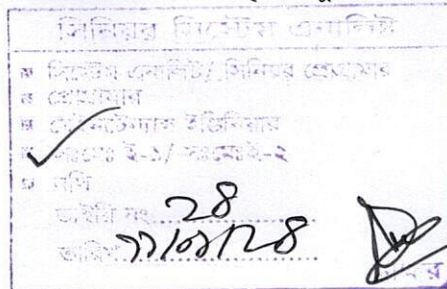 সিনিয়র সিস্টেম এনালিস্ট
সিস্টেম এনালিস্ট/ সিনিয়র প্রোগ্রামার
প্রোগ্রামার
মেইনটেন্যান্স ইঞ্জিনিয়ার
সঃমেঃ ই-১/ সঃমেঃই-২
নথি
ডাইরি নং ২৪
তারিখ